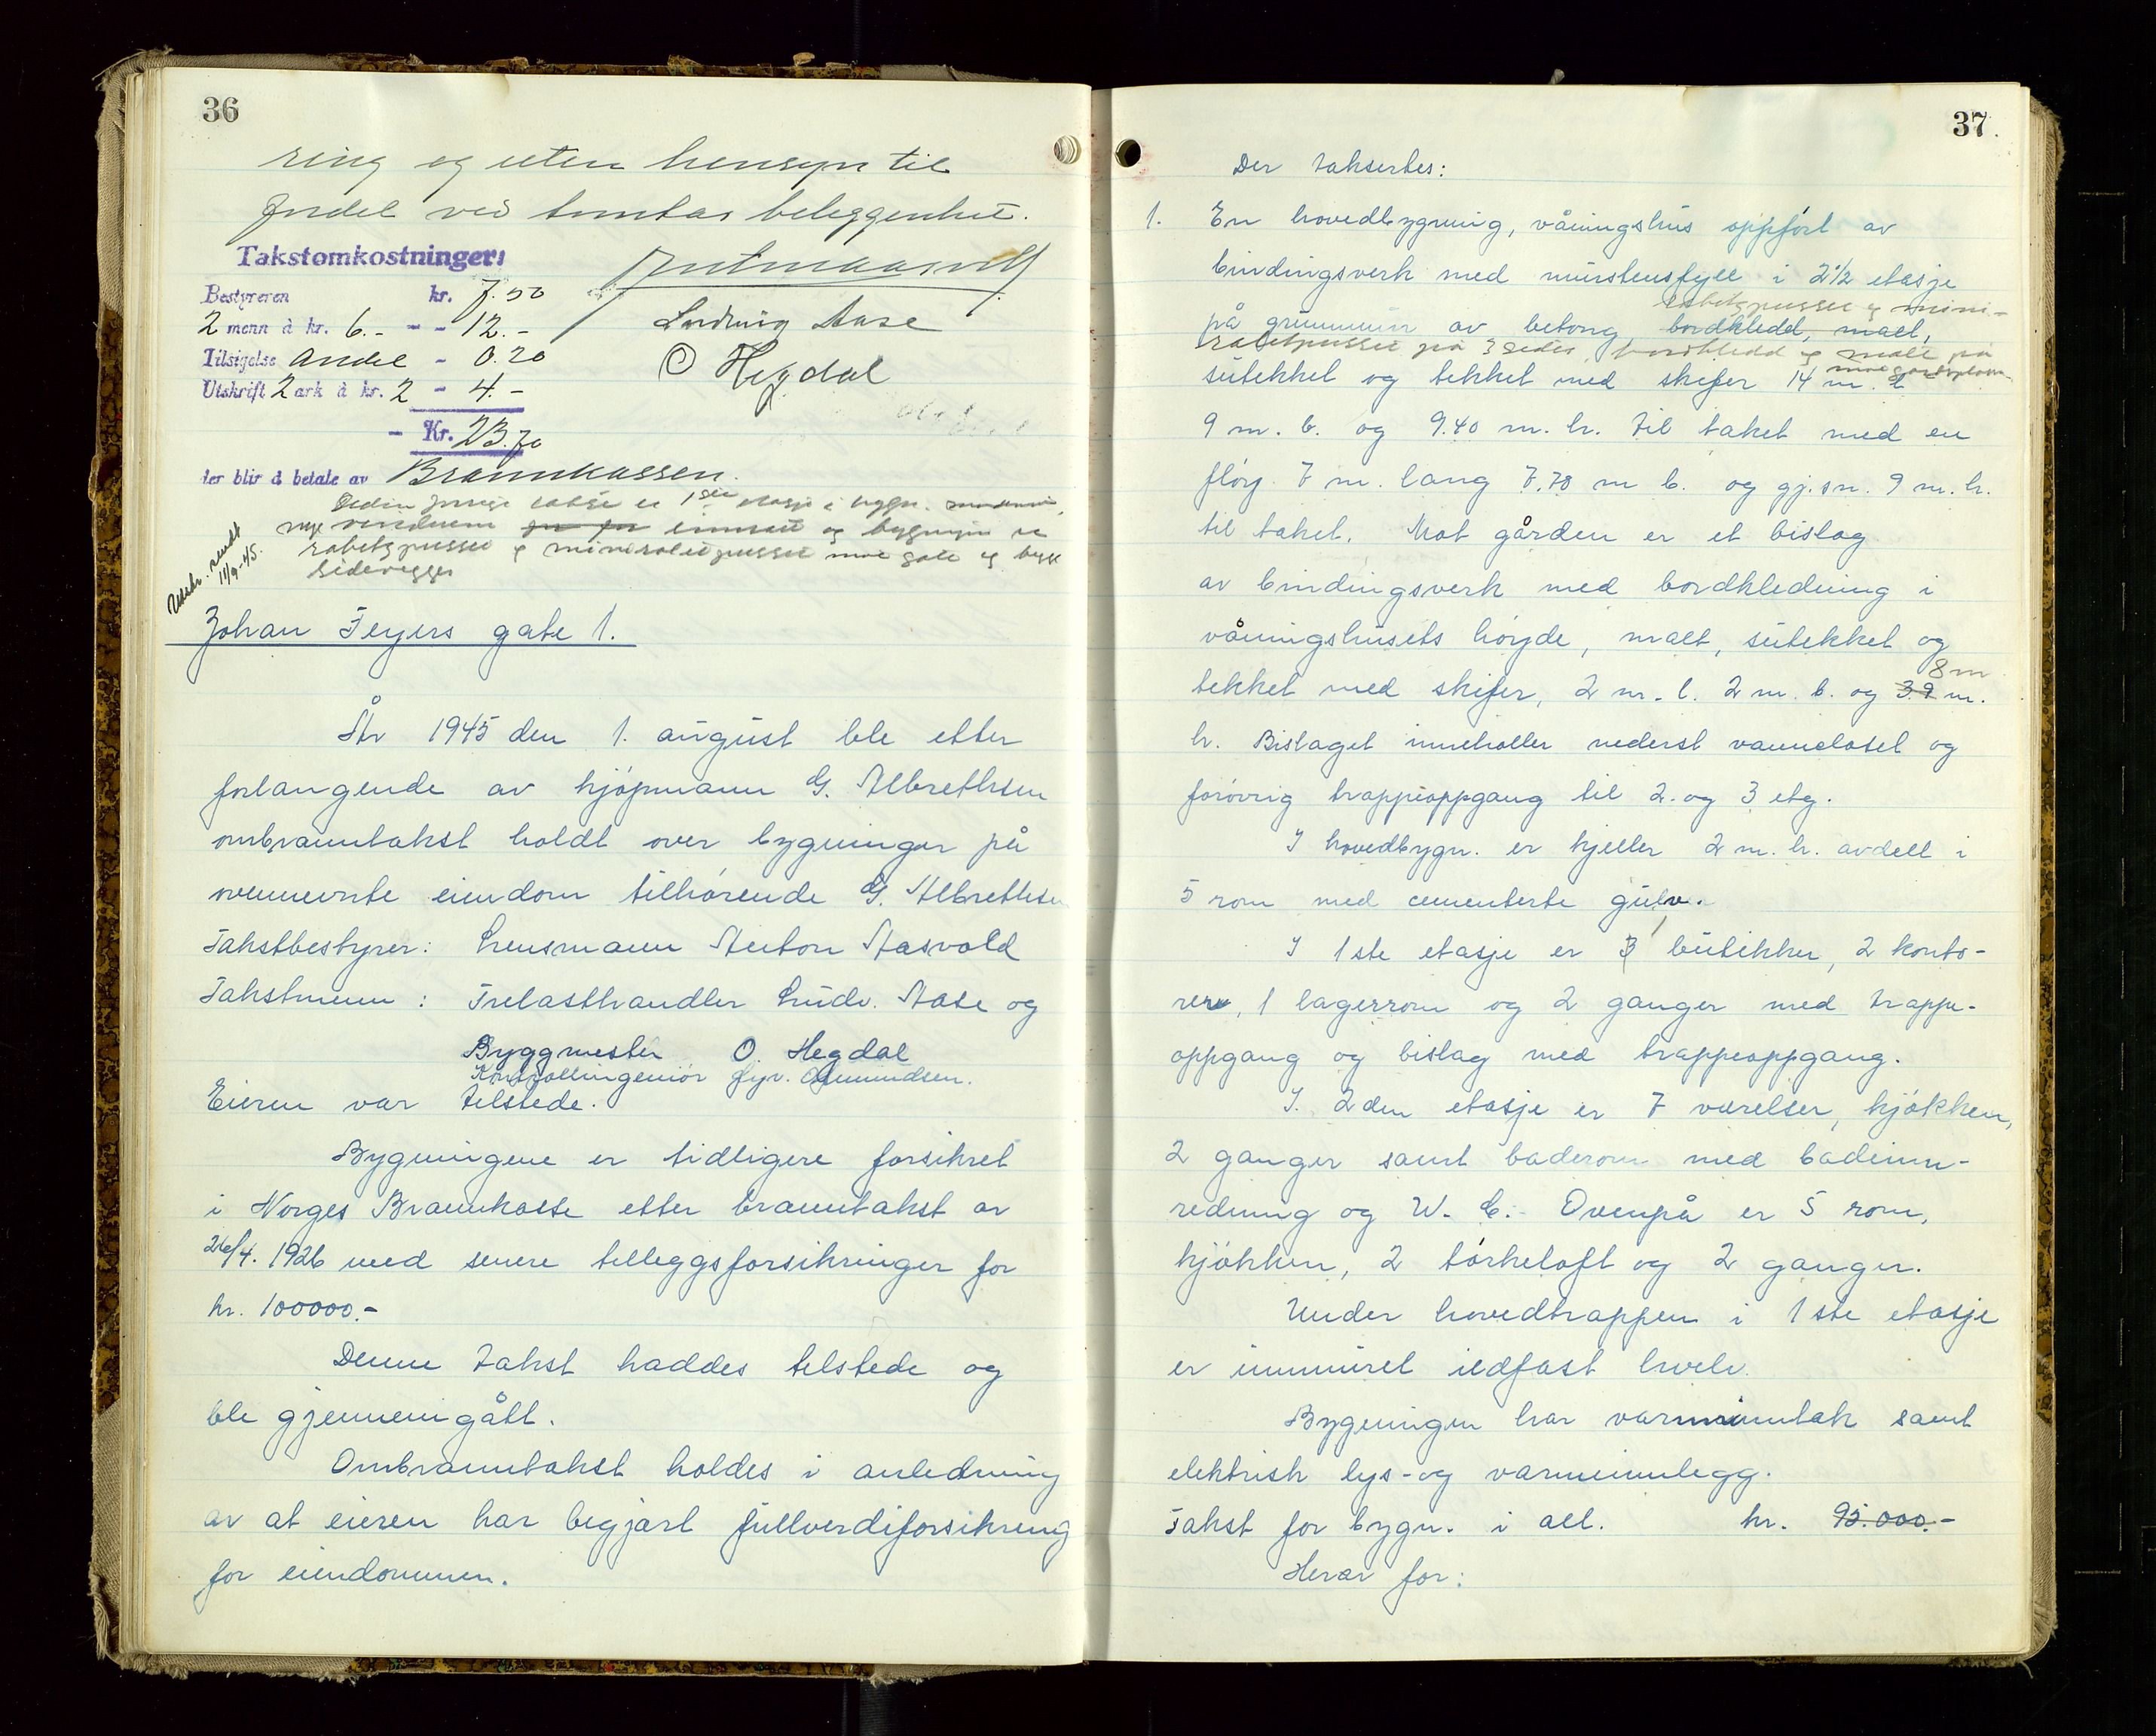 36
ring og uten hensyn til
fordel ved tomtas beleggenhet.
Takstomkostninger:
Bestyreren kr. 7.50
2 menn à kr. 6.- - - 12.-
Tilsigelse Andel - 0.20
Utskrift 2 ark à kr. 2 - 4.-
- Kr. 23.70
der blir å betale av Brannkassen.
Ludvig Aase
O Hegdal
Siden forrige takst er 1ste etasje i bygn.
nye vinduene innsatt og bygningen er
rabitzpusset og mineralitpusset mot gate og
sidevegger
Utskr. sendt
11/9-45.
Johan Feyers gate 1.
År 1945 den 1. august ble etter
forlangende av kjøpmann G. Albrethsen
ombranntakst holdt over bygninger på
ovennevnte eiendom tilhørende G. Albrethsen
Takstbestyrer: Lensmann Anton Aasvold
Takstmenn: Trelasthandler Ludv. Aase og
Byggmester O. Hegdal
Kontrollingeniør Gyr. Omundsen.
Eieren var tilstede.
Bygningene er tidligere forsikret
i Norges Brannkasse etter branntakst av
26/4. 1926 med senere tilleggsforsikringer for
kr. 100000.-
Denne takst haddes tilstede og
ble gjennemgått.
Ombranntakst holdes i anledning
av at eieren har begjært fullverdiforsikring
for eiendommen.
37.
Der taksertes:
1. En hovedbygning, våningshus oppført av
bindingsverk med murstensfyll i 2 1/2 etasje
rabitzpusset og mini-
på grunnmur av betong bordkledd, malt,
rabitpusset på 3 sider, bordkledd og malt på
mot gårdsplass
sutekket og tekket med skifer 14 m. l
9 m. b. og 9.40 m. h. til taket med en
fløy 7 m. lang 7.78 m b. og gj.sn. 9 m. h.
til taket. Mot gården er et bislag
av bindingsverk med bordkledning i
våningshusets høyde, malt, sutekket og
8 m
tekket med skifer, 2 m. l. 2 m. b. og 3.9 m.
h. Bislaget inneholler nederst vannclosel og
forøvrig trappeoppgang til 2. og 3 etg.
I hovedbygn. er kjeller 2 m. h. avdelt i
5 rom med cementerte gulv.
I 1ste etasje er 3 butikker, 2 konto-
rer, 1 lagerrom og 2 ganger med trappe-
oppgang og bislag med trappeoppgang.
I. 2den etasje er 7 værelser, kjøkken,
2 ganger samt baderom med badinn-
redning og W. C. Ovenpå er 5 rom,
kjøkken, 2 tørkeloft og 2 ganger.
Under hovedtrappen i 1ste etasje
er innmuret ildfast hvelv.
Bygningen har vanninntak samt
elektrisk lys- og varmeinnlegg.
Takst for bygn. i alt. kr. 95.000.-
Herav for: